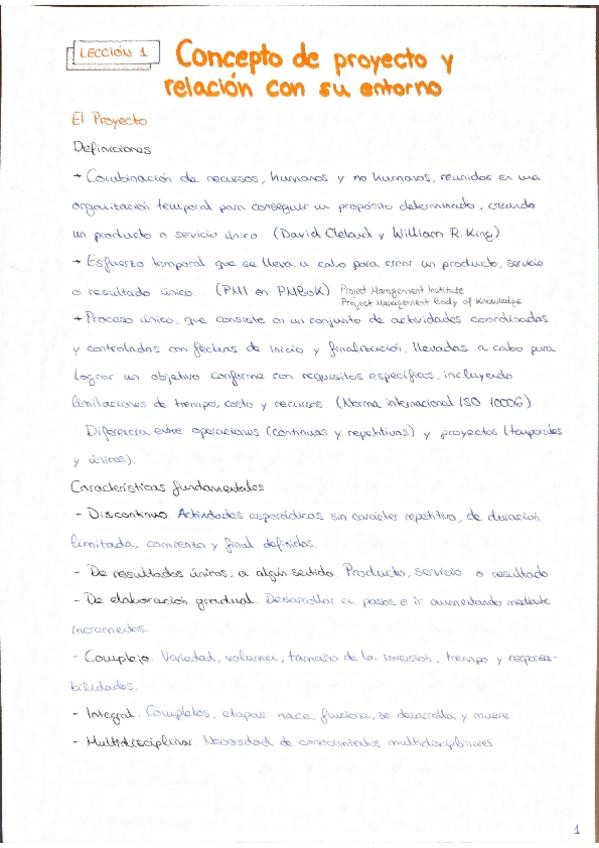 LECCIÓN 1
Concepto de proyecto y
relación con su entorno
El Proyecto
Definiciones
→ Combinación de recursos, humanos y no humanos, reunidos en una
organización temporal para conseguir un propósito determinado, creando
un producto o servicio único. (David Cleland y William R. King)
→ Esfuerzo temporal que se lleva a cabo para crear un producto, servicio
o resultado único. (PMI en PMBoK) Project Management Institute
Project Management Body of Knowledge
→ Proceso único, que consiste en un conjunto de actividades coordinadas
y controladas con fechas de inicio y finalización, llevadas a cabo para
lograr un objetivo conforme con requisitos específicos, incluyendo
limitaciones de tiempo, costo y recursos (Norma internacional ISO 10006)
Diferencia entre operaciones (continuas y repetitivas) y proyectos (temporales
y únicos).
Características fundamentales
- Discontinuo. Actividades esporádicas sin carácter repetitivo, de duración
limitada, comienzo y final definidos.
- De resultados únicos, a algún sentido. Producto, servicio o resultado
- De elaboración gradual. Desarrollar en pasos e ir aumentando mediante
incrementos.
- Complejo. Variedad, volumen, tamaño de la inversión, tiempo y responsa-
bilidades.
- Integral. Completos, etapas: nace, funciona, se desarrolla y muere
- Multidisciplinar. Necesidad de conocimientos multidisciplinares
1